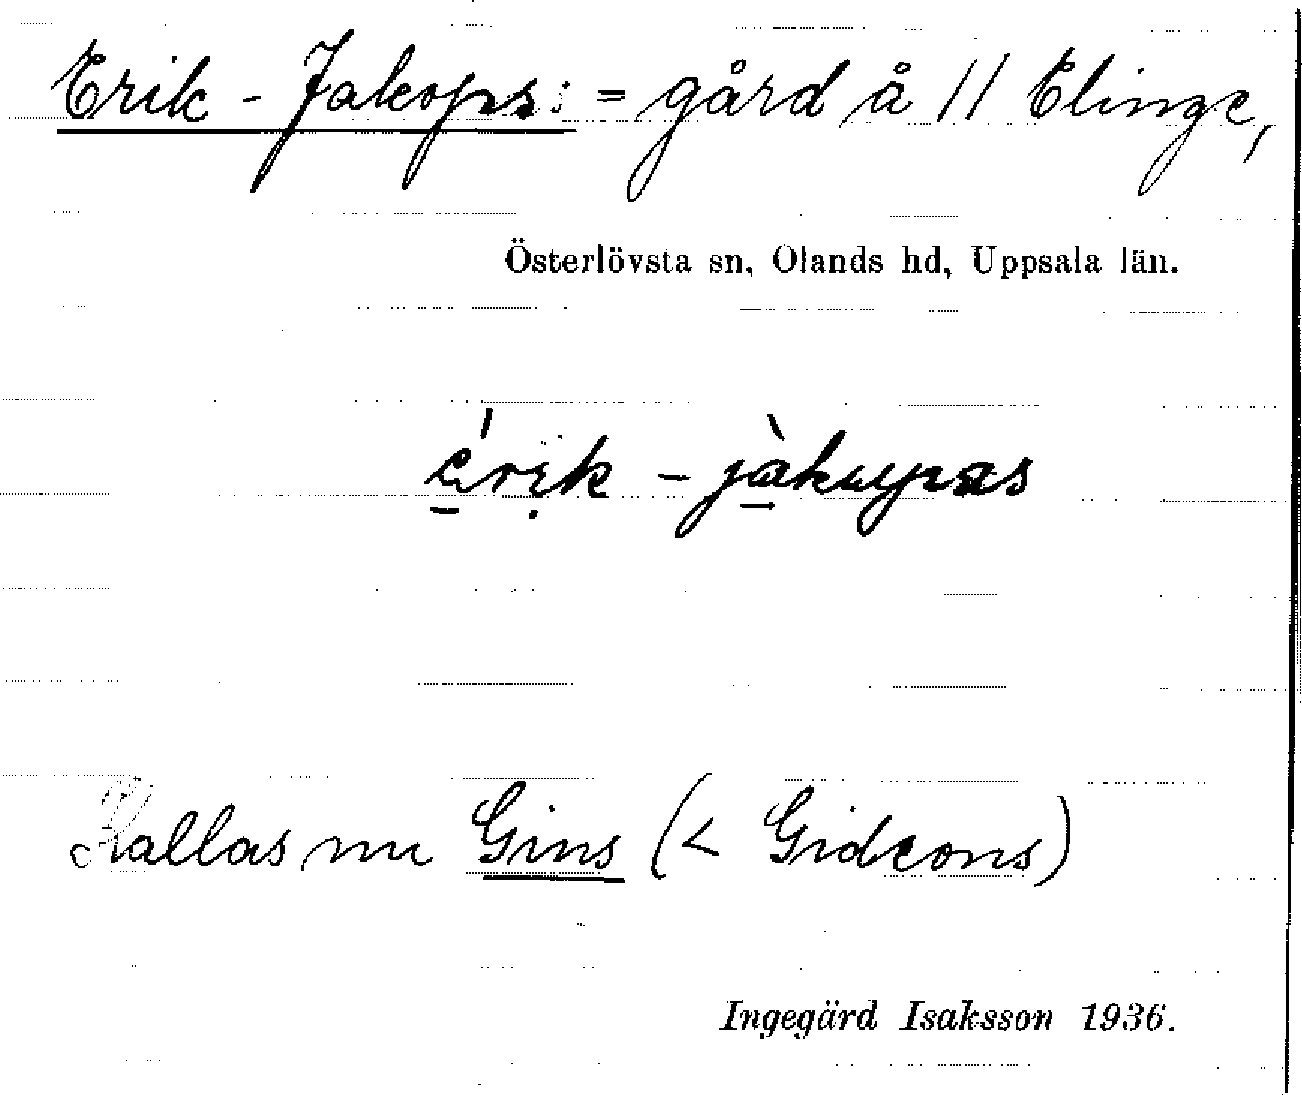 Erik-Jakops: = gård å 11 Elinge,
Österlövsta sn, Olands hd, Uppsala län.
é̱rịk - jà̱kupas
Kallas nu Gins (< Gideons)
Ingegärd Isaksson 1936.